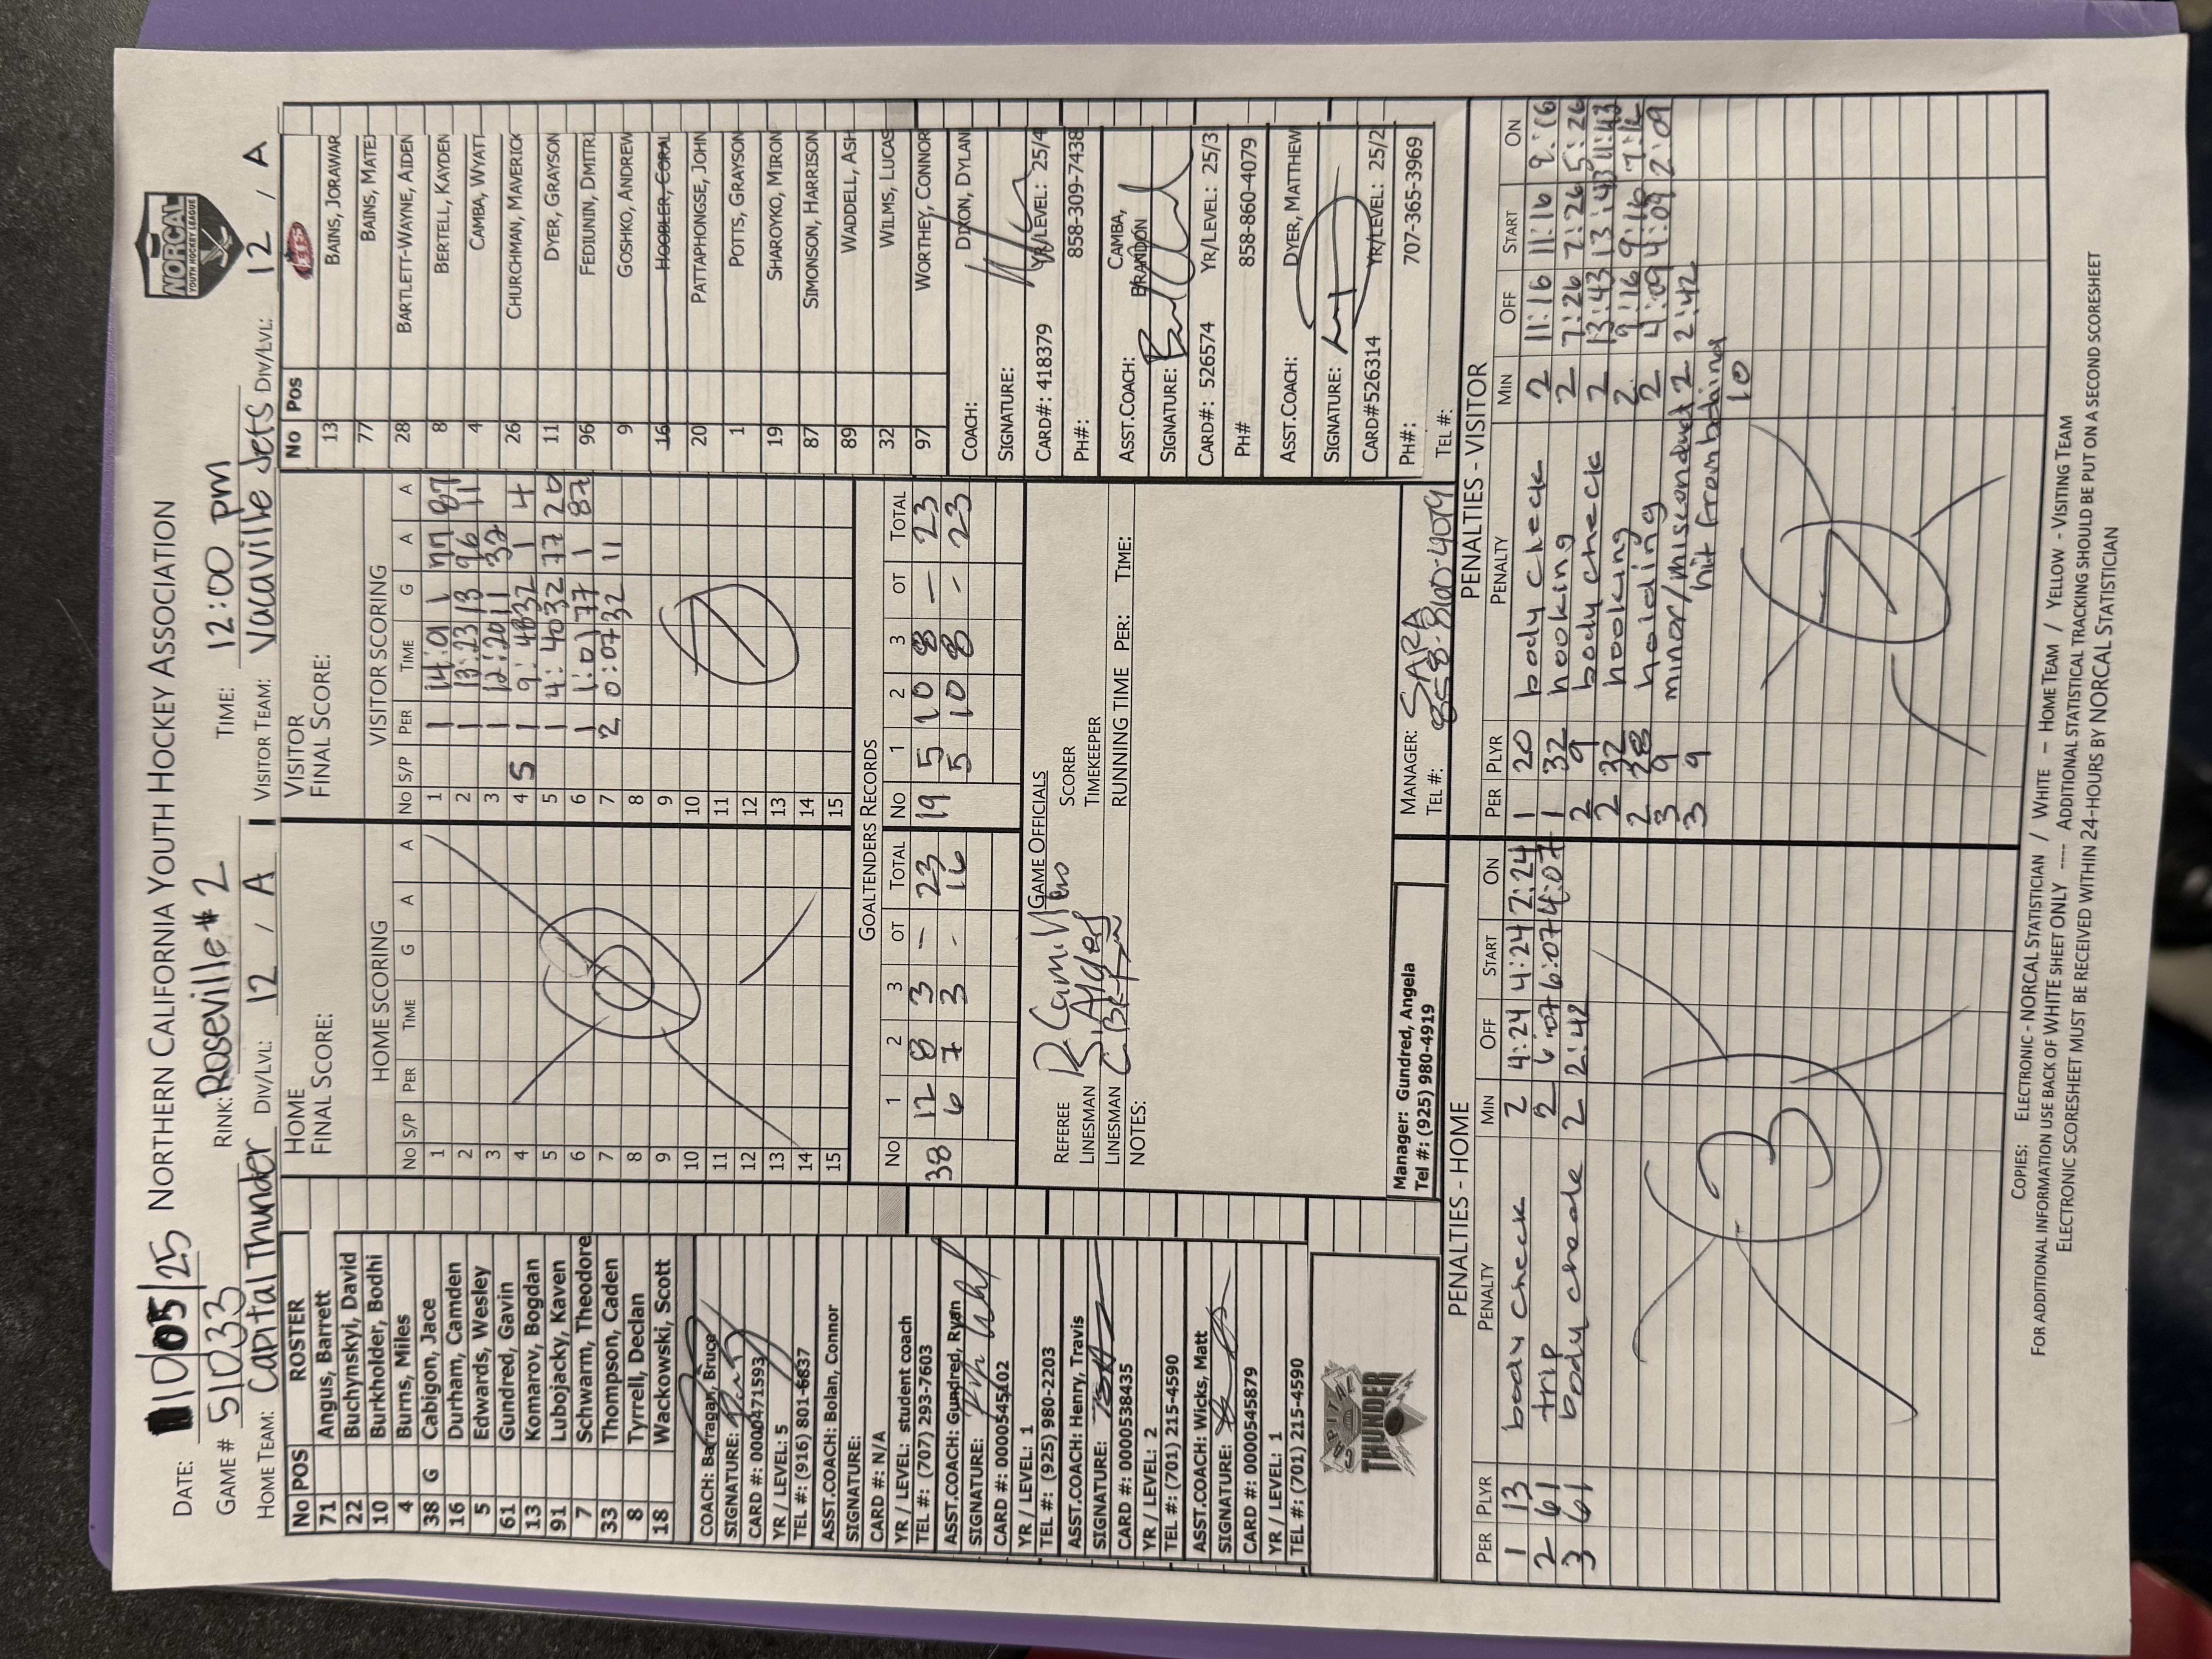 DATE: 11/05/25 NORTHERN CALIFORNIA YOUTH HOCKEY ASSOCIATION
NORCAL
YOUTH HOCKEY LEAGUE
GAME # 51033 RINK: Roseville #2 TIME: 12:00 pm
HOME TEAM: Capital Thunder DIV/LVL: 12 / A VISITOR TEAM: Vacaville Jets DIV/LVL: 12 / A
No POS ROSTER
71 Angus, Barrett
22 Buchynskyi, David
10 Burkholder, Bodhi
4 Burns, Miles
38 G Cabigon, Jace
16 Durham, Camden
5 Edwards, Wesley
61 Gundred, Gavin
13 Komarov, Bogdan
91 Lubojacky, Kaven
7 Schwarm, Theodore
33 Thompson, Caden
8 Tyrrell, Declan
18 Wackowski, Scott
COACH: Barragan, Bruce
SIGNATURE:
CARD #: 0000471593
YR / LEVEL: 5
TEL #: (916) 801-6837
ASST.COACH: Bolan, Connor
SIGNATURE:
CARD #: N/A
YR / LEVEL: student coach
TEL #: (707) 293-7603
ASST.COACH: Gundred, Ryan
SIGNATURE:
CARD #: 0000545102
YR / LEVEL: 1
TEL #: (925) 980-2203
ASST.COACH: Henry, Travis
SIGNATURE:
CARD #: 0000538435
YR / LEVEL: 2
TEL #: (701) 215-4590
ASST.COACH: Wicks, Matt
SIGNATURE:
CARD #: 0000545879
YR / LEVEL: 1
TEL #: (701) 215-4590
CAPITAL
THUNDER
HOME
FINAL SCORE:
HOME SCORING
No S/P PER TIME G A A
1
2
3
4
5
6
7
8
9
10
11
12
13
14
15
0
VISITOR
FINAL SCORE:
VISITOR SCORING
No S/P PER TIME G A A
1 1 14:01 1 77 87
2 1 13:23 13 96 11
3 1 12:20 11 32
4 S 1 9:48 32 1 4
5 1 4:40 32 77 20
6 1 1:01 77 1 87
7 2 0:07 32 11
8
9
10
11
12
13
14
15
7
GOALTENDERS RECORDS
No 1 2 3 OT TOTAL No 1 2 3 OT TOTAL
38 12 8 3 – 23 19 5 10 8 – 23
6 7 3 - 16 5 10 8 - 23
GAME OFFICIALS
REFEREE SCORER
LINESMAN TIMEKEEPER
LINESMAN RUNNING TIME PER: TIME:
NOTES:
Manager: Gundred, Angela
Tel #: (925) 980-4919
MANAGER: SARA
TEL #: 858-860-4079 TEL #:
No Pos
JETS
13 BAINS, JORAWAR
77 BAINS, MATEJ
28 BARTLETT-WAYNE, AIDEN
8 BERTELL, KAYDEN
4 CAMBA, WYATT
26 CHURCHMAN, MAVERICK
11 DYER, GRAYSON
96 FEDIUNIN, DMITRI
9 GOSHKO, ANDREW
16 HOOBLER, CORAL
20 PATTAPHONGSE, JOHN
1 POTTS, GRAYSON
19 SHAROYKO, MIRON
87 SIMONSON, HARRISON
89 WADDELL, ASH
32 WILMS, LUCAS
97 WORTHEY, CONNOR
COACH: DIXON, DYLAN
SIGNATURE:
CARD#: 418379 YR/LEVEL: 25/4
PH#: 858-309-7438
ASST.COACH: CAMBA, BRANDON
SIGNATURE:
CARD#: 526574 YR/LEVEL: 25/3
PH# 858-860-4079
ASST.COACH: DYER, MATTHEW
SIGNATURE:
CARD#526314 YR/LEVEL: 25/2
PH#: 707-365-3969
PENALTIES - HOME
PER PLYR PENALTY MIN OFF START ON
1 13 body check 2 4:24 4:24 2:24
2 61 trip 2 6:07 6:07 4:07
3 61 body check 2 2:42
3
PENALTIES - VISITOR
PER PLYR PENALTY MIN OFF START ON
1 20 body check 2 11:16 11:16 9:16
1 32 hooking 2 7:26 7:26 5:26
2 9 body check 2 13:43 13:43 11:43
2 32 hooking 2 9:16 9:16 7:16
2 28 holding 2 4:09 4:09 2:09
3 9 minor/misconduct 2 2:42
3 9 hit from behind 10
7
COPIES: ELECTRONIC - NORCAL STATISTICIAN / WHITE – HOME TEAM / YELLOW - VISITING TEAM
FOR ADDITIONAL INFORMATION USE BACK OF WHITE SHEET ONLY ---- ADDITIONAL STATISTICAL TRACKING SHOULD BE PUT ON A SECOND SCORESHEET
ELECTRONIC SCORESHEET MUST BE RECEIVED WITHIN 24-HOURS BY NORCAL STATISTICIAN